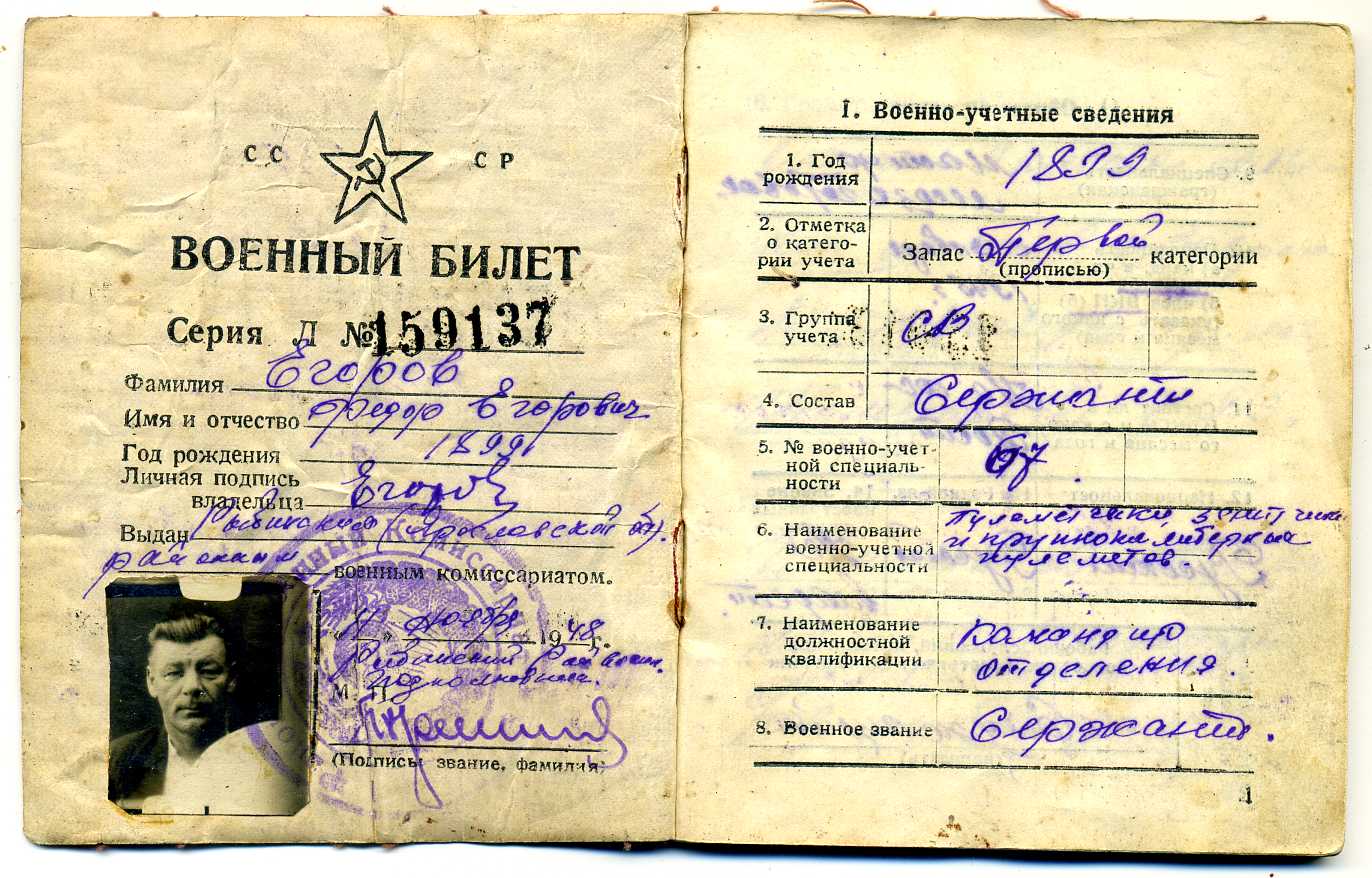 СС СР
ВОЕННЫЙ БИЛЕТ
Серия Л № 159137
Фамилия Егоров
Имя и отчество Федор Егорович
Год рождения 1899
Личная подпись
владельца Егоров
Выдан Рыбинский (Ярославской
районным
военным комиссариатом.
ноября 1948 г.
Рыбинский
М. П.
(Подпись, звание, фамилия)
I. Военно-учетные сведения
1. Год
рождения 1899
2. Отметка
о катего-
рии учета
Запас Первой категории
(прописью)
3. Группа
учета
СВ
4. Состав Сержанты
5. № военно-учет-
ной специаль-
ности
67
6. Наименование
военно-учетной
специальности
Пулеметчики
и крупнокалиберных
пулеметов.
7. Наименование
должностной
квалификации
Командир
отделения.
8. Военное звание Сержант.
1